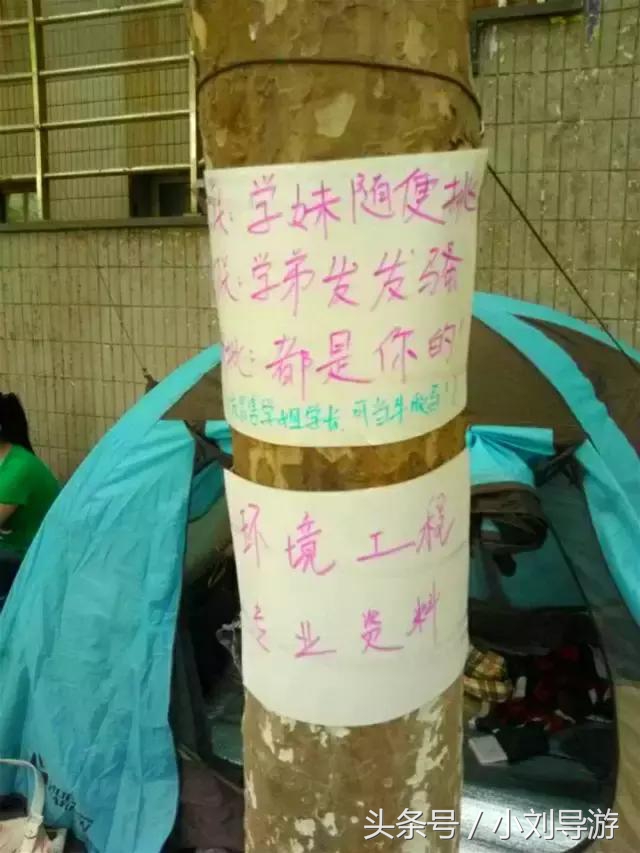 联:学妹随便挑
联:学弟发发骚
批:都是你的!
学姐学长可当牛做马!
环境工程
专业资料
头条号/小刘导游